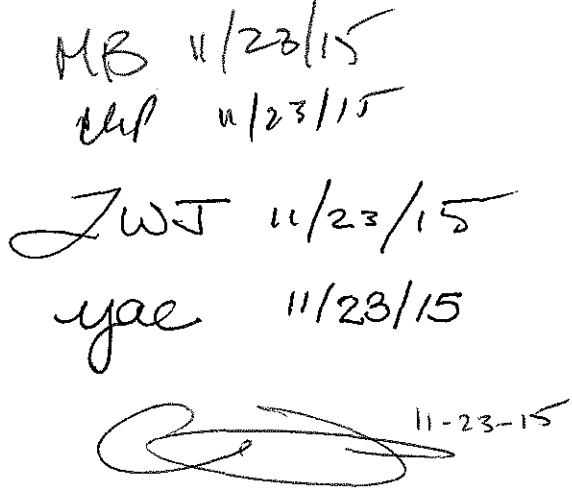 MB 11/23/15
11/23/15
ZWJ 11/23/15
yae 11/23/15
11-23-15